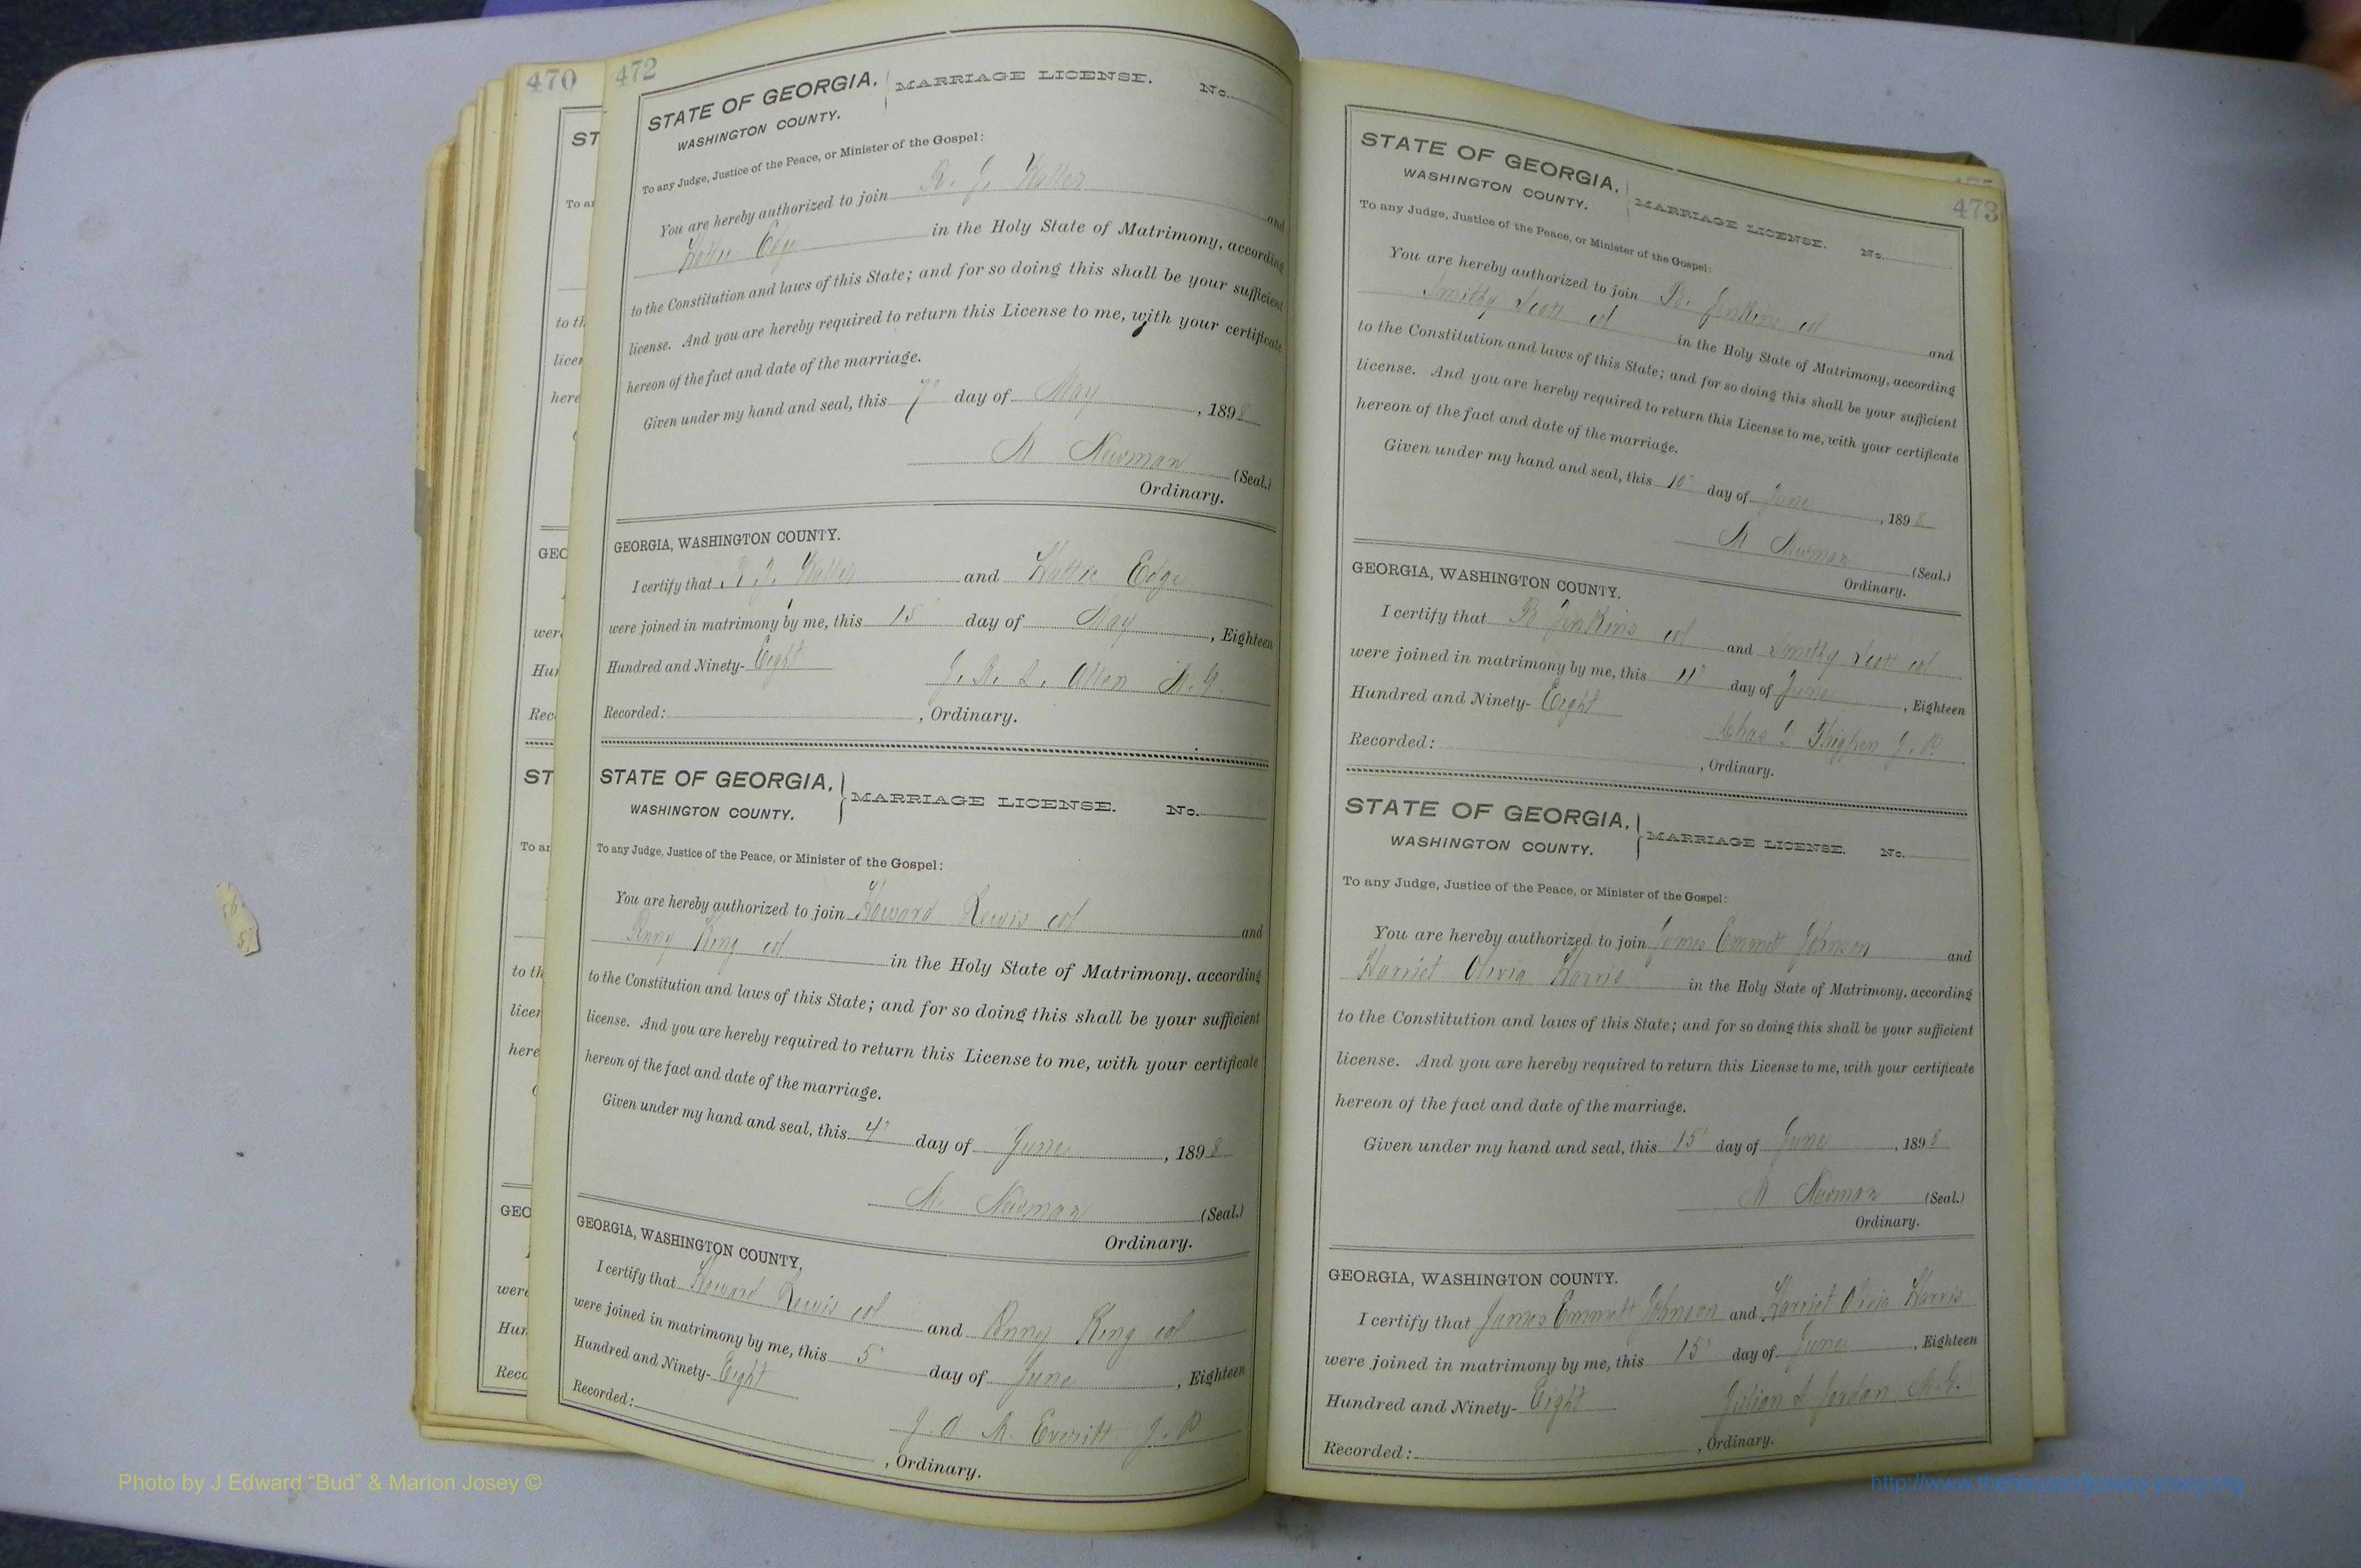 470
ST
To a
to th
licen
here
GEO
were
Hun
Rec
ST
To a
to th
licen
here
GEO
were
Hun
Reco
472
STATE OF GEORGIA,
WASHINGTON COUNTY.
MARRIAGE LICENSE. No.
To any Judge, Justice of the Peace, or Minister of the Gospel:
You are hereby authorized to join R. J. and
Hattie Edge in the Holy State of Matrimony, according
to the Constitution and laws of this State; and for so doing this shall be your sufficient
license. And you are hereby required to return this License to me, with your certificate
hereon of the fact and date of the marriage.
Given under my hand and seal, this 7" day of May, 1898
M Newman (Seal.)
Ordinary.
GEORGIA, WASHINGTON COUNTY.
I certify that R. J. and Hattie Edge
were joined in matrimony by me, this 15 day of May, Eighteen
Hundred and Ninety-Eight
J. R. L. Allen M. G.
Recorded: , Ordinary.
STATE OF GEORGIA,
WASHINGTON COUNTY.
MARRIAGE LICENSE. No.
To any Judge, Justice of the Peace, or Minister of the Gospel:
You are hereby authorized to join Howard Lewis col and
King col in the Holy State of Matrimony, according
to the Constitution and laws of this State; and for so doing this shall be your sufficient
license. And you are hereby required to return this License to me, with your certificate
hereon of the fact and date of the marriage.
Given under my hand and seal, this 4" day of June, 1898
M. Newman (Seal.)
Ordinary.
GEORGIA, WASHINGTON COUNTY.
I certify that Howard Lewis col and King col
were joined in matrimony by me, this 5" day of June, Eighteen
Hundred and Ninety-Eight
J. A. M. Everitt J. P
Recorded: , Ordinary.
473
STATE OF GEORGIA,
WASHINGTON COUNTY.
MARRIAGE LICENSE. No.
To any Judge, Justice of the Peace, or Minister of the Gospel:
You are hereby authorized to join B. Jenkins col and
Smithy Scott col in the Holy State of Matrimony, according
to the Constitution and laws of this State; and for so doing this shall be your sufficient
license. And you are hereby required to return this License to me, with your certificate
hereon of the fact and date of the marriage.
Given under my hand and seal, this 10" day of June, 1898
M Newman (Seal.)
Ordinary.
GEORGIA, WASHINGTON COUNTY.
I certify that B Jenkins col and Smithy Scott col
were joined in matrimony by me, this 11" day of June, Eighteen
Hundred and Ninety-Eight
Chas D Thigpen J. P.
Recorded: , Ordinary.
STATE OF GEORGIA,
WASHINGTON COUNTY.
MARRIAGE LICENSE. No.
To any Judge, Justice of the Peace, or Minister of the Gospel:
You are hereby authorized to join James Emmett Johnson and
Harriet Olivia Harris in the Holy State of Matrimony, according
to the Constitution and laws of this State; and for so doing this shall be your sufficient
license. And you are hereby required to return this License to me, with your certificate
hereon of the fact and date of the marriage.
Given under my hand and seal, this 15" day of June, 1898
M Newman (Seal.)
Ordinary.
GEORGIA, WASHINGTON COUNTY.
I certify that James Emmett Johnson and Harriet Olivia Harris
were joined in matrimony by me, this 15" day of June, Eighteen
Hundred and Ninety-Eight
Julian S Jordan M. G.
Recorded: , Ordinary.
Photo by J Edward “Bud” & Marion Josey ©